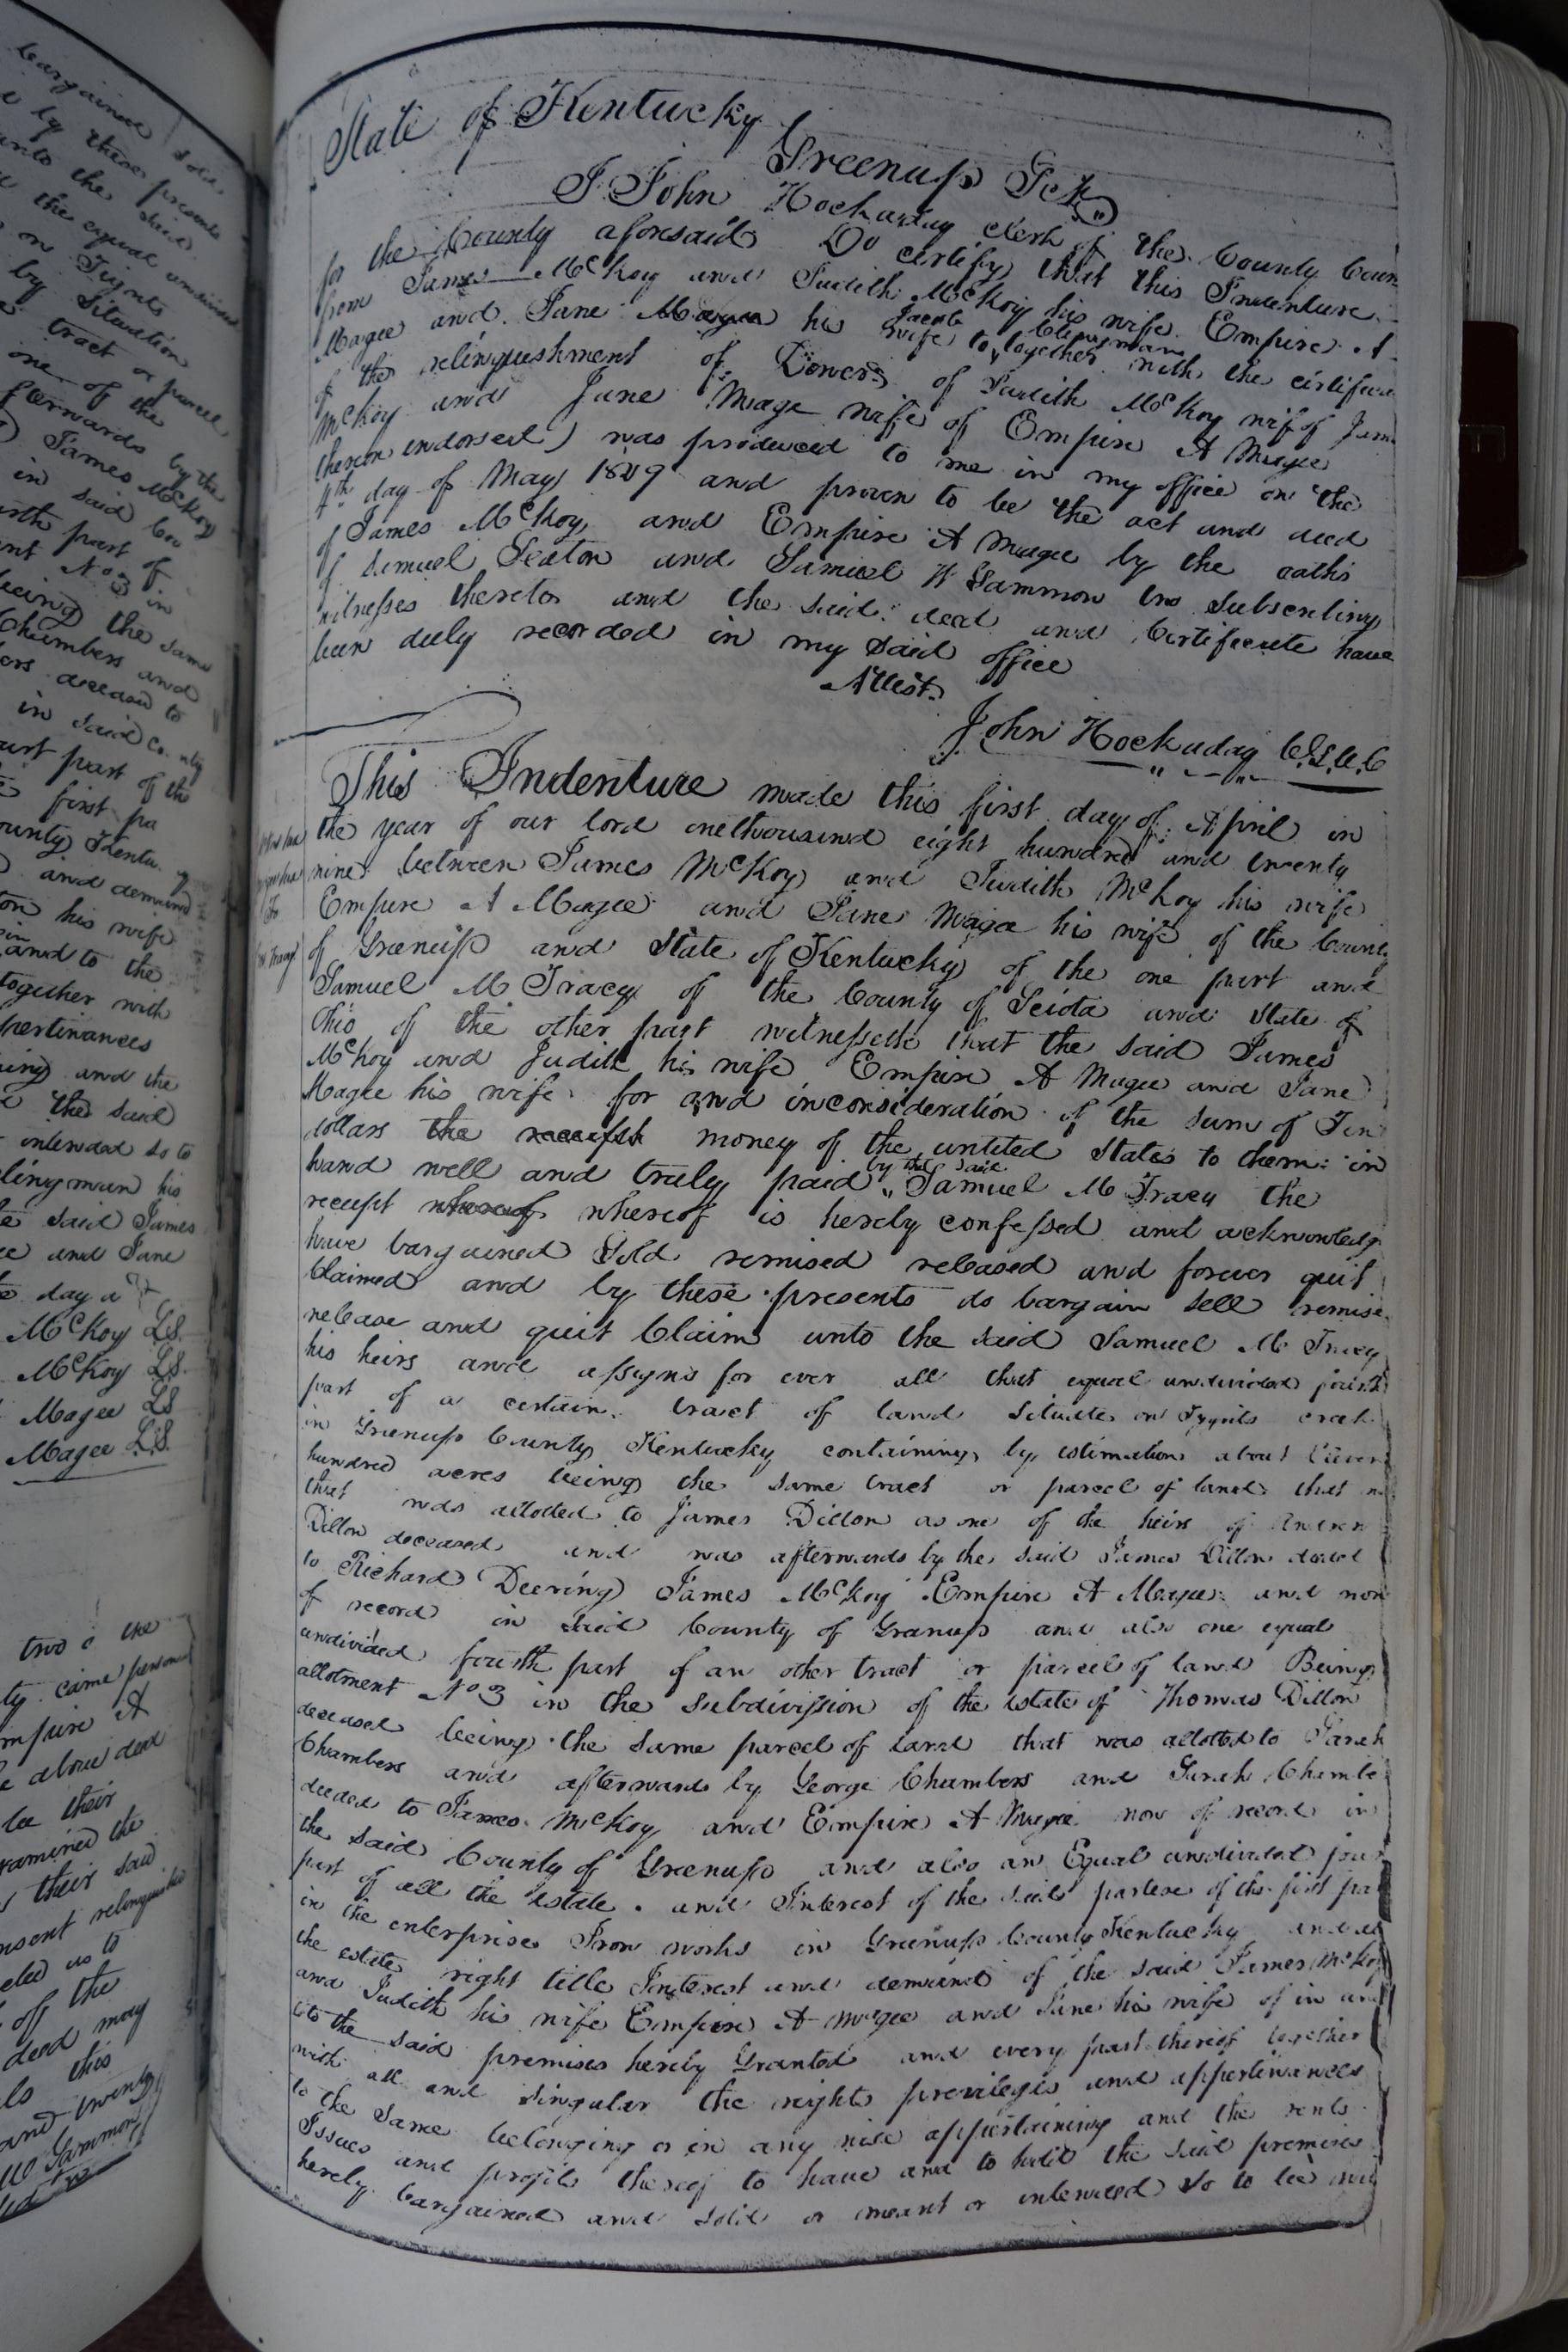 bargained sold
by these presents
unto the said
the equal undivided
on Tygits
by Situation
tract or parcel
one of the
forwards by the
James McKoy
in said Cou
fourth part of
No 3 in
being the same
Chambers and
deceased to
in said County
part of the
first pa
ounty Kentu y
and demand
on his wife
and to the
together with
pertinances
ing and the
the said
intended so to
lingman his
said James
and Jane
day a
McKoy LS.
McKoy LS.
Magee LS
Magee LS.
two
ty came person
mpire A
above deed
be their
examined the
their said
onsent relinquished
of the
deed may
this
and twenty
W Gammon
State of Kentucky
Greenup Sct
I John Hockaday clerk of the County Cour
for the County aforesaid Do certify that this Indenture
from James McKoy and Judith McKoy his wife Empire A
Jacob Clingman
Magee and Jane Magee his wife to together with the certifica
of the relinquishment of Dower of Judith McKoy wife of Jam
McKoy and Jane Mage wife of Empire A Magee
thereon endorsed) was produced to me in my office on the
4th day of May 1829 and proven to be the act and deed
of James McKoy and Empire A Magee by the oaths
of Samuel Seaton and Samuel W Gammon two subscribing
witnesses thereto and the said deed and Certificate have
been duly recorded in my said office
Attest
John Hockaday C.G.C.C
This Indenture made this first day of April in
the year of our lord onethousand eight hundred and twenty
nine between James McKoy and Judith McKoy his wife
Empire A Magee and Jane Magee his wife of the County
of Greenup and State of Kentucky of the one part and
Samuel M Tracy of the County of Sciota and State of
Ohio of the other part witnesseth that the said James
McKoy and Judith his wife Empire A Magee and Jane
Magee his wife for and inconsideration of the sum of Ten
dollars the receipt money of the untited States to them in
by the said
hand well and truly paid Samuel M Tracy the
receipt whereof whereof is hereby confessed and acknowledg
have bargained Sold remised released and forever quit
Claimed and by these presents do bargain sell remise
release and quit Claim unto the said Samuel M Tracy
his heirs and assigns for ever all that equal undivided fourth
part of a certain tract of land Situate on Tygits creek
in Greenup County Kentucky containing by estimation about
hundred acres being the same tract or parcel of land that
that was allotted to James Dillon as one of the heirs of
Dillon deceased and was afterwards by the said James Dillon deeded
to Richard Deering James McKoy Empire A Magee and now
of record in said County of Greenup and also one equal
undivided fourth part of an other tract or parcel of land Being
allotment No 3 in the subdivision of the estate of Thomas Dillon
deceased being the same parcel of land that was allotted to Sarah
Chambers and afterwards by George Chambers and Sarah Chambe
deeded to James McKoy and Empire A Magee now of record in
the said County of Greenup and also an Equal undivided four
part of all the estate and Interest of the said parties of the first par
in the enterprise Iron works in Greenup County Kentucky and all
the estate right title Interest and demand of the said James McKoy
and Judith his wife Empire A McGee and Jane his wife of in and
to the said premises hereby Granted and every part thereof together
with all and singular the rights previlegis and appertinances
to the same belonging or in any wise appertaining and the rents
Issues and profits thereof to have and to hold the said premises
hereby bargained and sold or meant or intended so to be